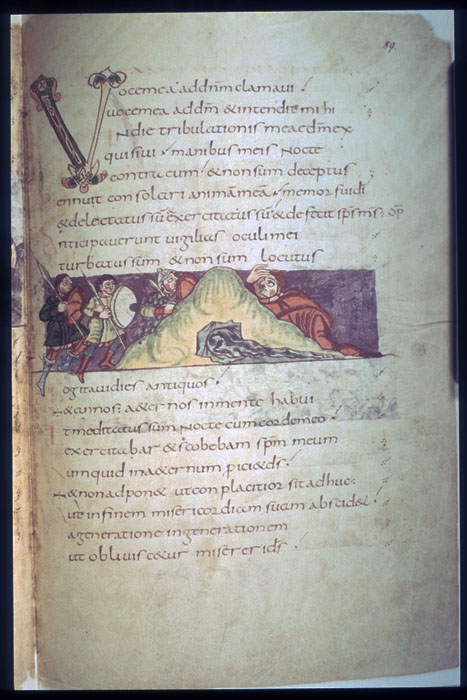 89.
Voce mea ad dnm clamaui
uoce mea ad dm & intendit mihi
In die tribulationis meae dm ex
quisiui manibus meis Nocte
contra eum & non sum deceptus
ennuit consolari animam mea memor fui di
& delectatus su exercitatus su & defecit sps ms
nticipauerunt uigilias oculi mei
turbatus sum & non sum locutus
ogitaui dies antiquos
& annos aeternos in mente habui
t meditatus sum Nocte cum corde meo
exercitabar & scobebam spm meum
umquid in aeternum piciet ds
& non adponet ut conplacitior sit adhuc
ut in finem misericordiam suam abscidet
a generatione in generationem
ut obliuiscetur misereri ds